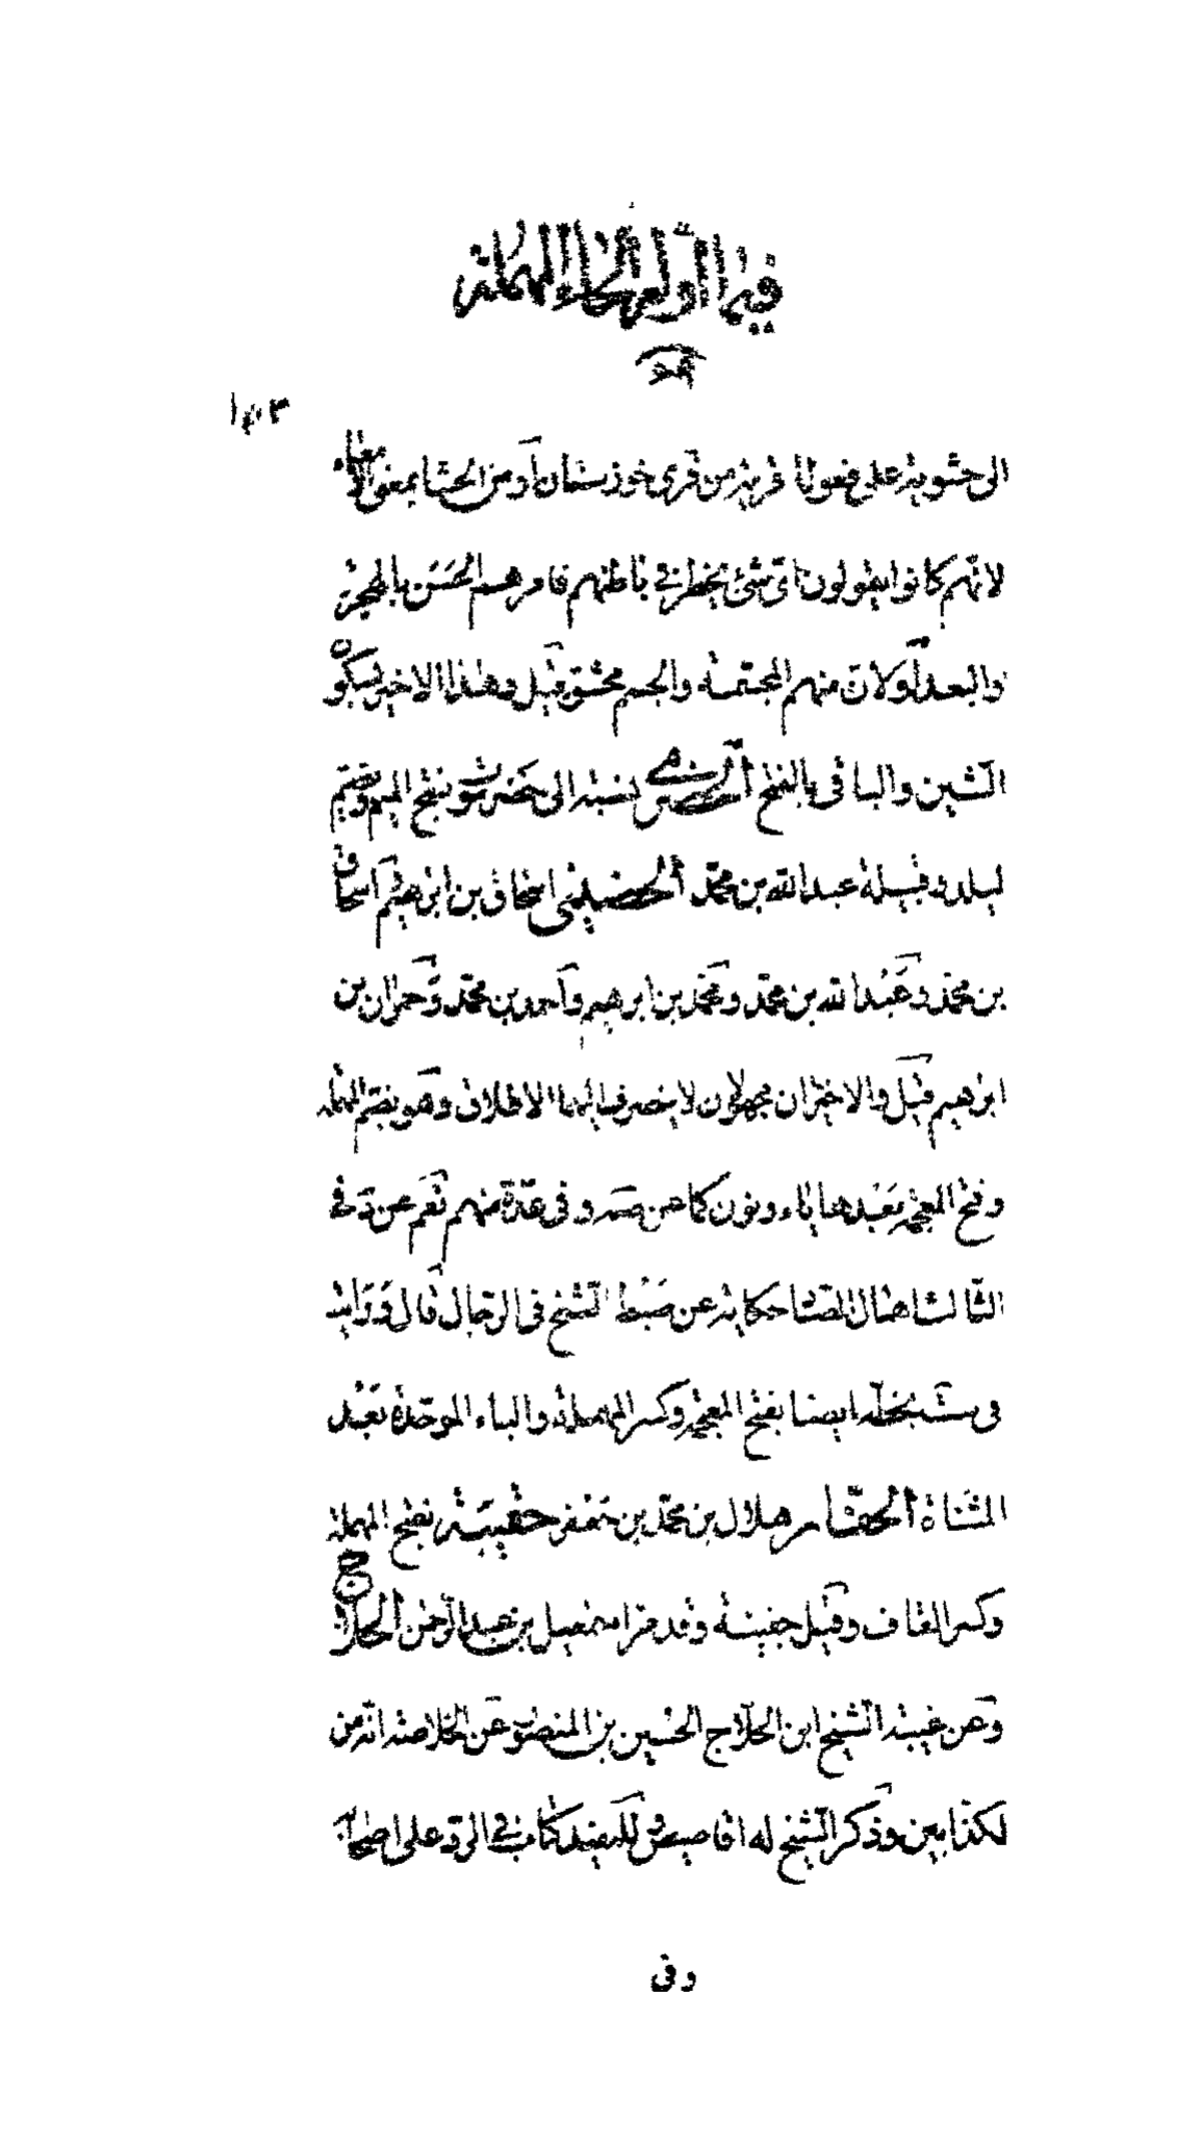 فيما أوله الحاء المهملة
١٥٣
الى حشوية على فعولة قرية من قرى خوزستان او من الحشا بمعنى الامعاء
لانهم كانوا يقولون باى شئ يخطر في باطنهم فامرهم الحسن بالهجرة
والبعد أو لان منهم المجسمة والجسم محشو قيل وهذا الاخير بسكون
الشين والباقى بالفتح الحضرمى نسبة الى حضرموت بفتح الميم وتضم
لبلد وقبيلة عبد الله بن محمد الحضينى اسحاق بن ابرهيم اسحاق
بن محمد وعبد الله بن محمد ومحمد بن ابرهيم واحمد بن محمد وحمران بن
ابرهيم قيل والاخيران مجهولان لا ينصرف اليهما الاطلاق وهو بضم المهملة
وفتح المعجمة بعدها ياء ونون كما عن صه وفى عدة منهم نعم عن د فى
الثالث اهمال الصاد حكاية عن ضبط الشيخ فى الرجال قال ورايته
فى نسخة ايضا بفتح المعجمة وكسر المهملة والباء الموحدة بعد
المثناة الحفار هلال بن محمد بن جعفر حقيبة بفتح المهملة
وكسر القاف وقيل جفينة وقد مر اسمعيل بن عبد الرحمن الحلاج
وعن غيبة الشيخ ابن الحلاج الحسين بن المنصور عن الخلاصة انه من
الكذابين وذكر الشيخ له اقاصيص للمفيد كتاب في الرد على اصحابه
وفى